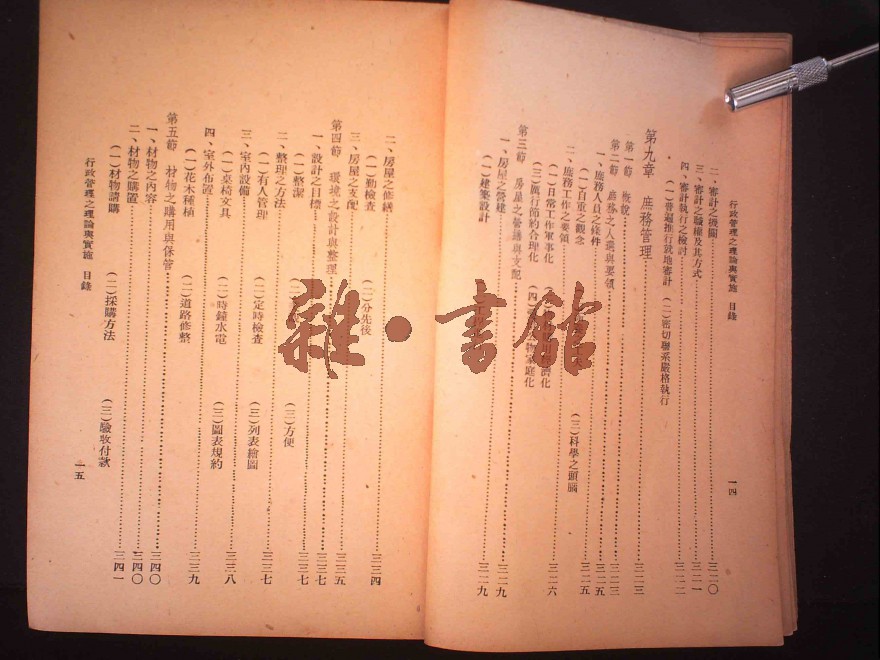 行政管理之理論與實施 目錄
一四
二、審計之機關 三二〇
三、審計之職權及其方式 三二一
四、審計執行之檢討 三二二
(一)普遍推行就地審計 (二)密切聯系嚴格執行
第九章 庶務管理 三二三
第一節 概說 三二三
第二節 庶務之人選與要領 三二五
一、庶務人員之條件 三二五
(一)自重之觀念 (三)科學之頭腦
二、庶務工作之要領 三二六
(一)日常工作軍事化
(三)厲行節約合理化 (四)
第三節 房屋之營繕與支配 三二九
一、房屋之營建 三二九
(一)建築設計
二、房屋之修繕 三三四
(一)勤檢查 (二)分先後
三、房屋之支配 三三五
第四節 環境之設計與整理 三三七
一、設計之目標 三三七
(一)整潔 (三)方便
二、整理之方法 三三七
(一)有人管理 (二)定時檢查 (三)列表繪圖
三、室內設備 三三八
(一)桌椅文具 (二)時鐘水電 (三)圖表規約
四、室外布置 三三九
(一)花木種植 (二)道路修整
第五節 材物之購用與保管 三四〇
一、材物之內容 三四〇
二、材物之購置 三四一
(一)材物請購 (二)採購方法 (三)驗收付款
行政管理之理論與實施 目錄
一五
雜·書館